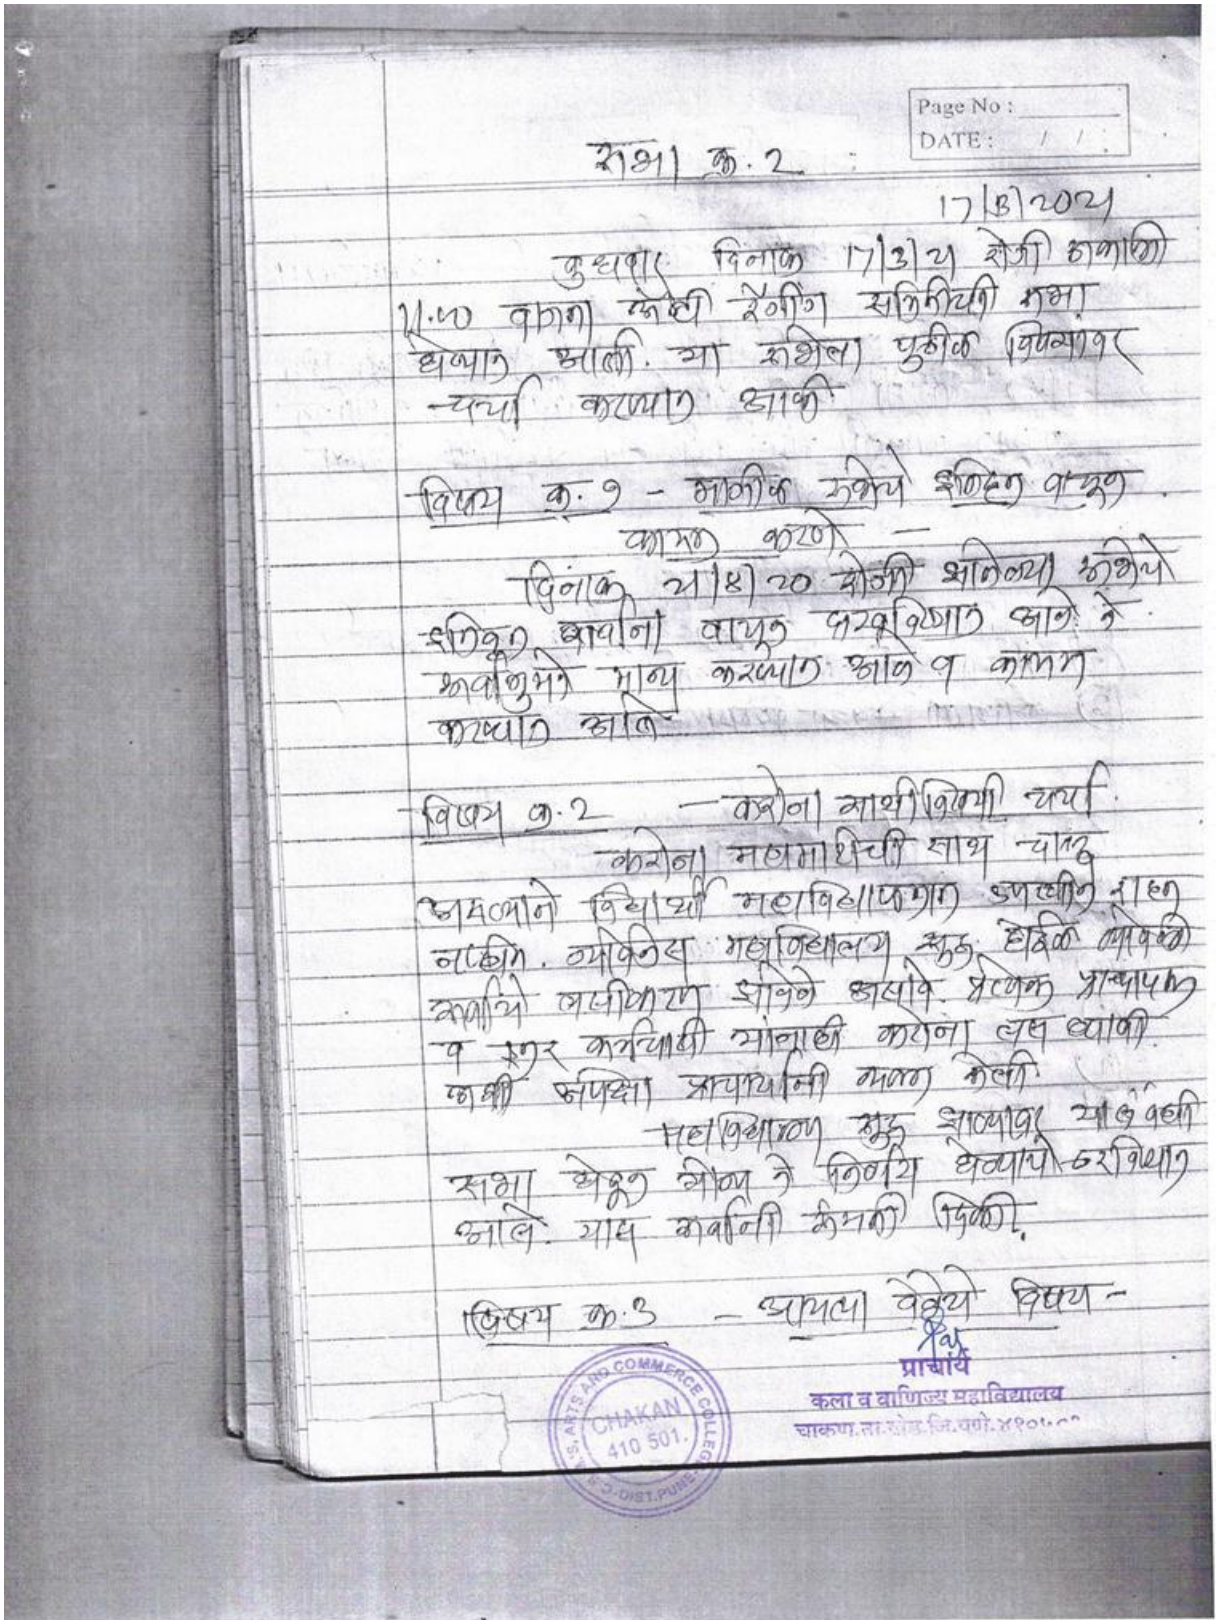 Page No :
DATE : / /
सभा क्र. २
17/3/2021
बुधवार दिनांक 17/3/21 रोजी सकाळी
११.४० वाजता अँटी रॅगींग समितीची सभा
घेण्यात आली. या सभेला पुढील विषयांवर
चर्चा करण्यात आली
विषय क्र. १ - मागील सभेचे इतिवृत्त वाचून
कायम करणे -
दिनांक 21/8/20 रोजी झालेल्या सभेचे
इतिवृत्त सर्वांना वाचून दाखविण्यात आले. ते
सर्वानुमते मान्य करण्यात आले व कायम
करण्यात आले
विषय क्र. २ - करोना साथीविषयी चर्चा.
करोना महामारीची साथ चालू
असल्याने विद्यार्थी महाविद्यालयात उपस्थित राहत
नाहीत. महाविद्यालय सुरू होईल त्यावेळी
सर्वांचे लसीकरण झालेले असावे. प्रत्येक प्राध्यापक
व इतर कर्मचारी यांनाही करोना लस द्यावी.
अशी अपेक्षा प्राचार्यांनी व्यक्त केली
महाविद्यालय सुरू झाल्यावर
सभा घेवून योग्य ते निर्णय घेण्याचे ठरविण्यात
आले. यास सर्वांनी संमती दिली.
विषय क्र. ३ - आयत्या वेळेचे विषय -
प्राचार्य
कला व वाणिज्य महाविद्यालय
चाकण. ता. खेड. जि. पुणे.
ARTS AND COMMERCE COLLEGE
CHAKAN
410 501.
DIST. PUNE